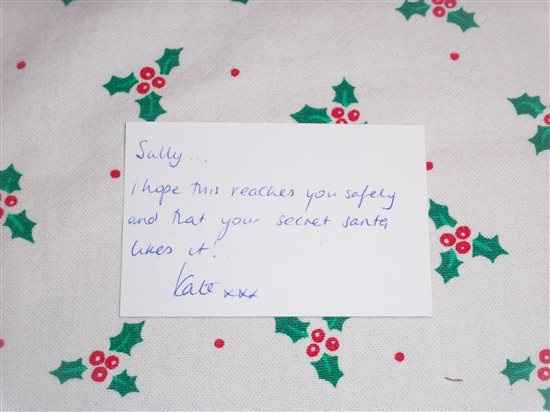 Sally...
I hope this reaches you safely
and that your secret santa
likes it!
Kate xxx